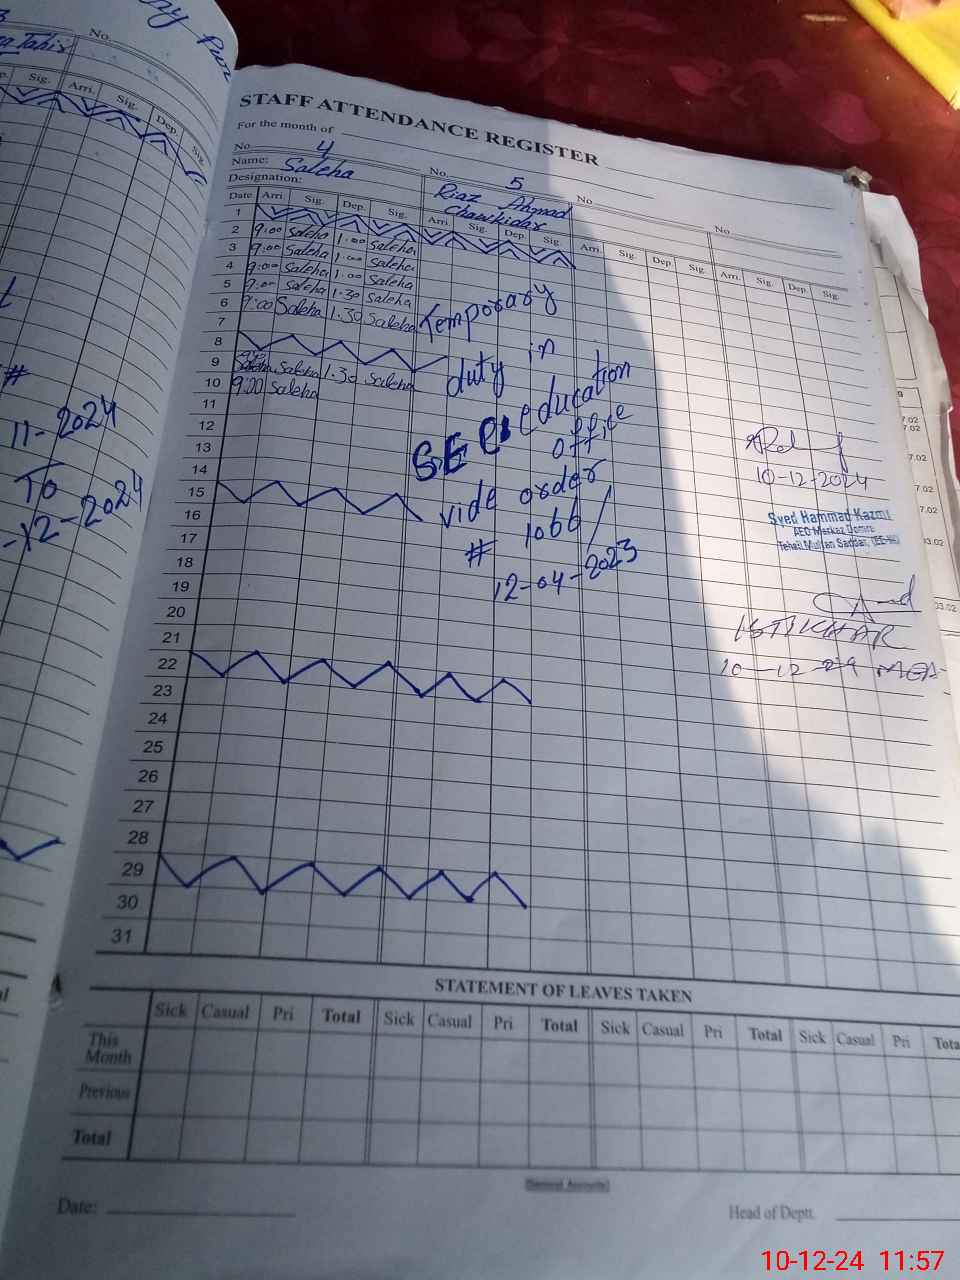 No.
Tahir
Sig. Arri. Sig. Dep. Sig.
#
11-2024
To
-12-2024
STAFF ATTENDANCE REGISTER
For the month of
No. 4 No. 5 No. No.
Name: Saleha Riaz Ahmad
Designation: Chawkidar
Date Arri. Sig. Dep. Sig. Arri. Sig. Dep. Sig. Arri. Sig. Dep. Sig. Arri. Sig. Dep. Sig.
1
2 9:00 Saleha 1.00 Saleha
3 9:00 Saleha 1.00 Saleha
4 9:00 Saleha 1.00 Saleha
5 9:00 Saleha 1.30 Saleha
6 9:00 Saleha 1.30 Saleha
7
8
9 Saleha 1.30 Saleha
10 9:00 Saleha
11
12
13
14
15
16
17
18
19
20
21
22
23
24
25
26
27
28
29
30
31
Temporary
duty in
education
office
vide order
# 1066/
12-04-2023
10-12-2024
Syed Hammad Kazmi
AEO Markaz Domra
Tehsil Multan Saddar,
ISTIKHAR
10-12-24 MEA
STATEMENT OF LEAVES TAKEN
Sick Casual Pri Total Sick Casual Pri Total Sick Casual Pri Total Sick Casual Pri Tota
This Month
Previous
Total
Date:
Head of Deptt.
10-12-24 11:57